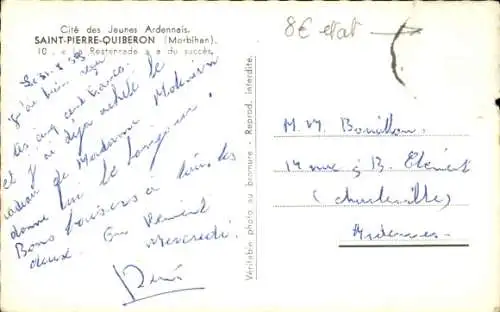 Cité des Jeunes Ardennais.
SAINT-PIERRE-QUIBERON (Morbihan).
10. « La Resterrade » a du succès.
8€ etat
Le 31-8 59
J'ai bien reçu
tes cinq cent francs
et j'ai déjà acheté le
cadeau de Madame
donne lui le bonjour !
Bons baisers à tous les
deux. On revient
mercredi.
Véritable photo au bromure - Reprod. interdite.
M.M. Bouillon
14 rue J. B. Clément
(Charleville)
Ardennes